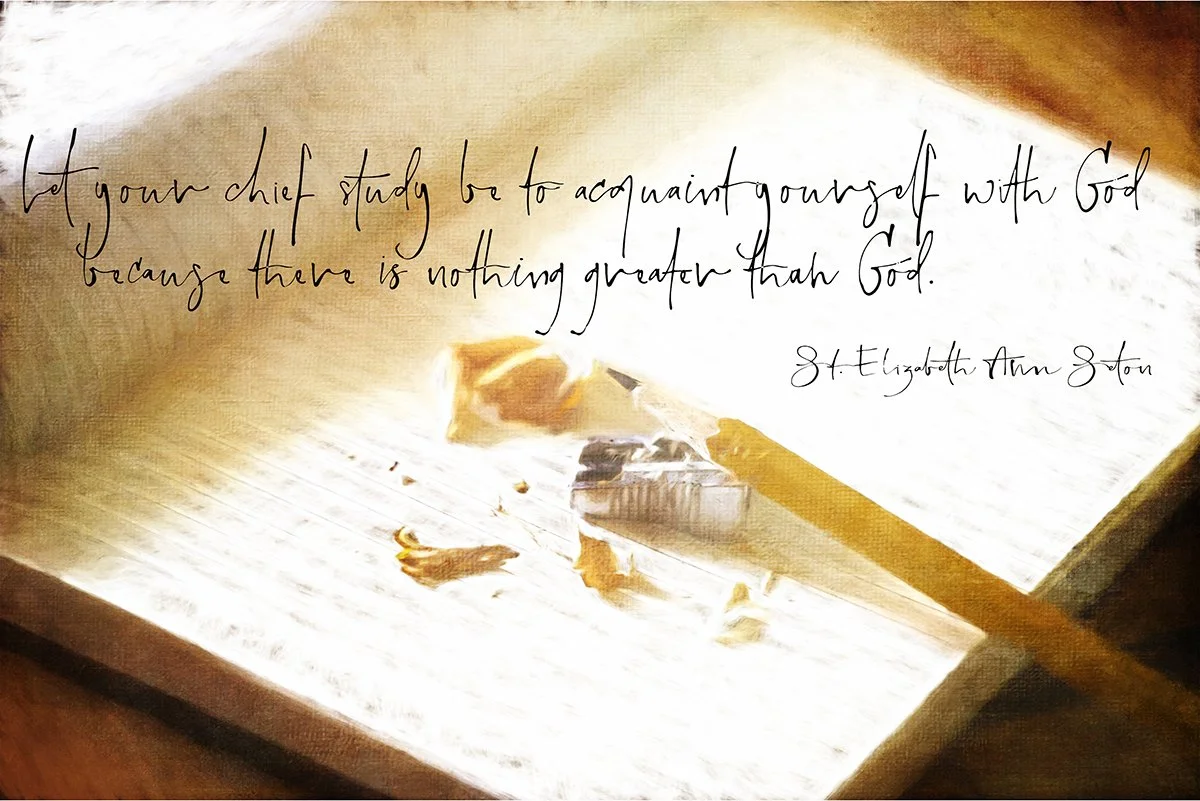 Let your chief study be to acquaint yourself with God
because there is nothing greater than God.
St. Elizabeth Ann Seton